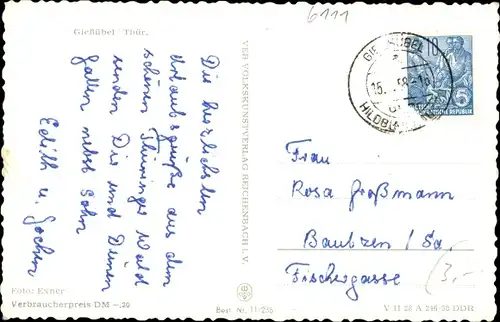 6111
Gießübel Thür.
Die herzlichsten
Urlaubsgrüße aus dem
schönen Thüringer Wald
senden Dir und Deinem
Gatten nebst Sohn
Edith u. Jochen
VEB VOLKSKUNSTVERLAG REICHENBACH i. V.
Foto: Exner
Verbraucherpreis DM -,20
Best. Nr. 11/235
GIESSÜBEL
15.
HILDBU
10
Frau
Rosa Großmann
Bautzen / Sa.
Fischergasse
3,-
V 11 28 A 246 58 DDR